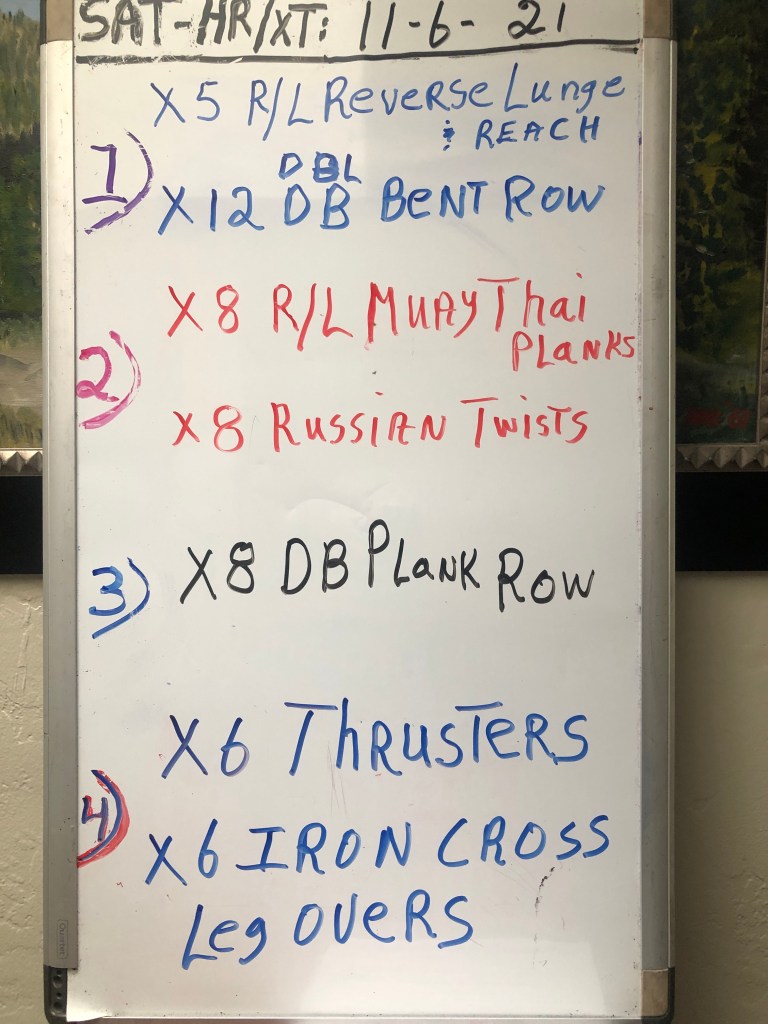 SAT-HR/XT: 11-6-21
X5 R/L Reverse Lunge
& REACH
1)
DBL
X12 DB BENT ROW
X8 R/L MUAY Thai
PLANKS
2)
X8 RUSSIAN TWISTS
3) X8 DB PLANK ROW
X6 THRUSTERS
4)
X6 IRON CROSS
Leg OVERS
Quartet